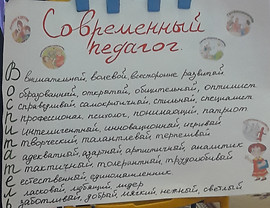 Современный
педагог
Внимательный, волевой, всесторонне развитый
Образованный, оперативный, общительный, оптимист
Справедливый, самокритичный, стильный, специалист
Профессионал, психолог, понимающий, патриот
Интеллигентный, инновационный, игривый
Творческий, талантливый, терпеливый
Адекватный, азартный, артистичный, аналитик
Тактичный, толерантный, трудолюбивый
Естественный, единомышленник
Ласковый, любящий, лидер
заботливый, добрый, мягкий, нежный, светлый